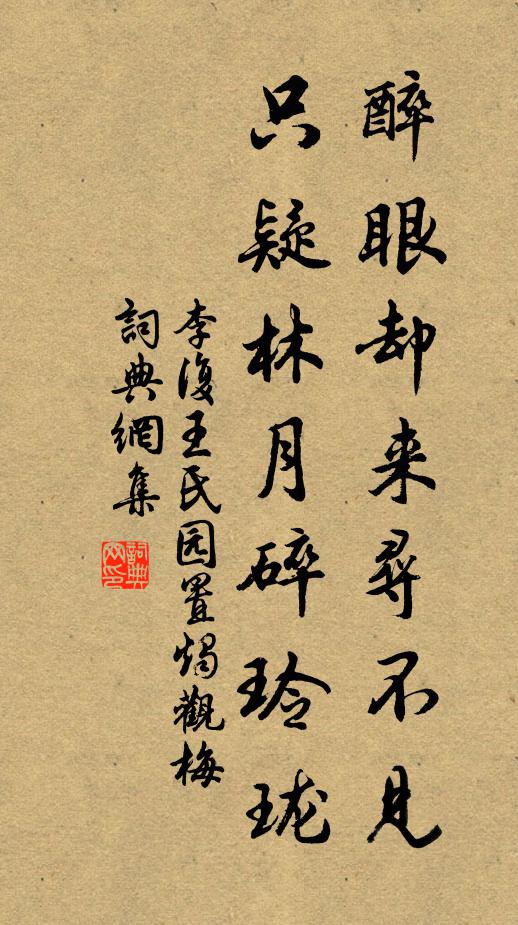 醉眼却来尋不見
只疑林月碎玲珑
李復王氏园置燭觀梅
詞典網集
詞典网印